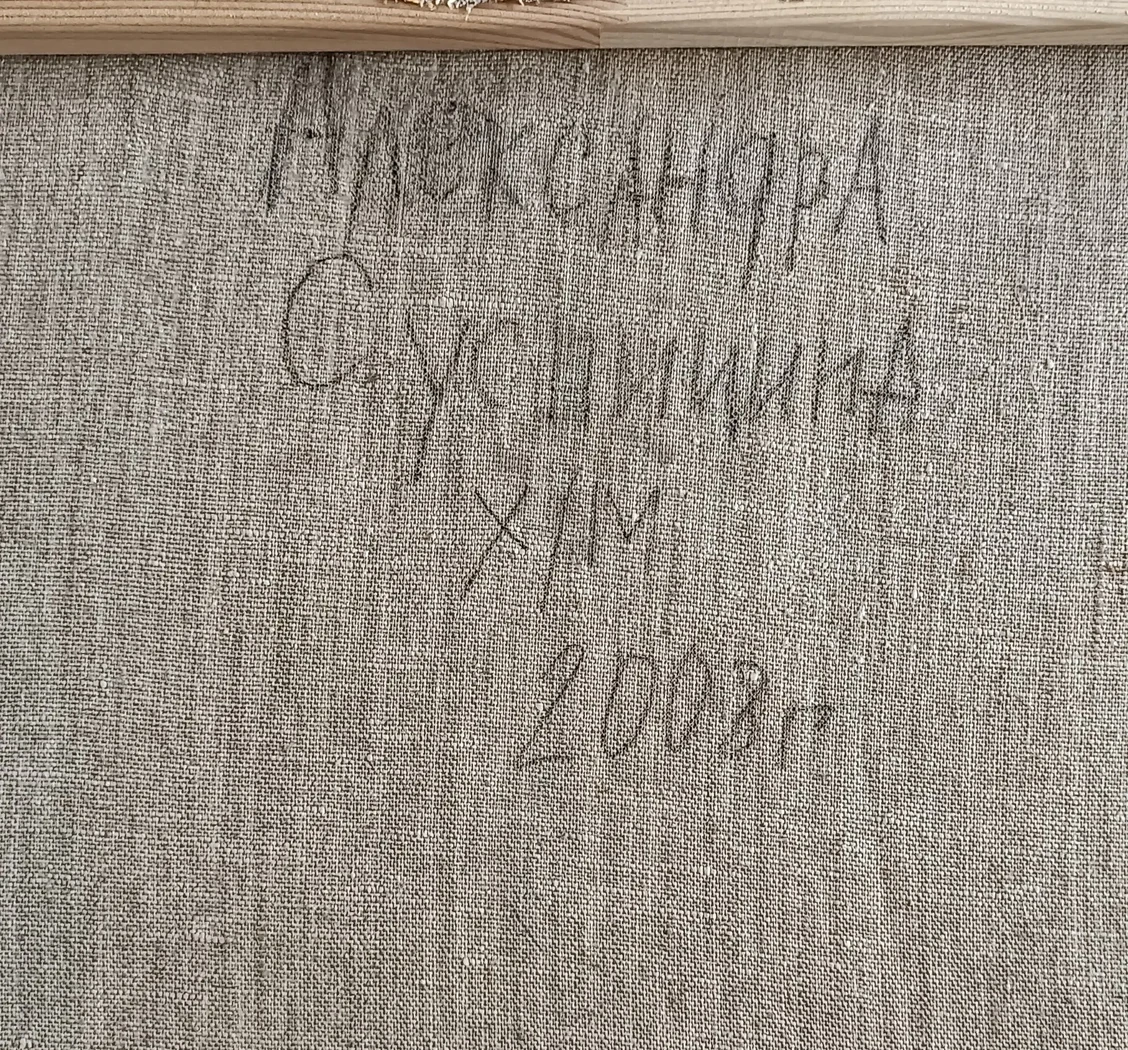 АлексАндрА
СуспицинА
Х/М
2008г